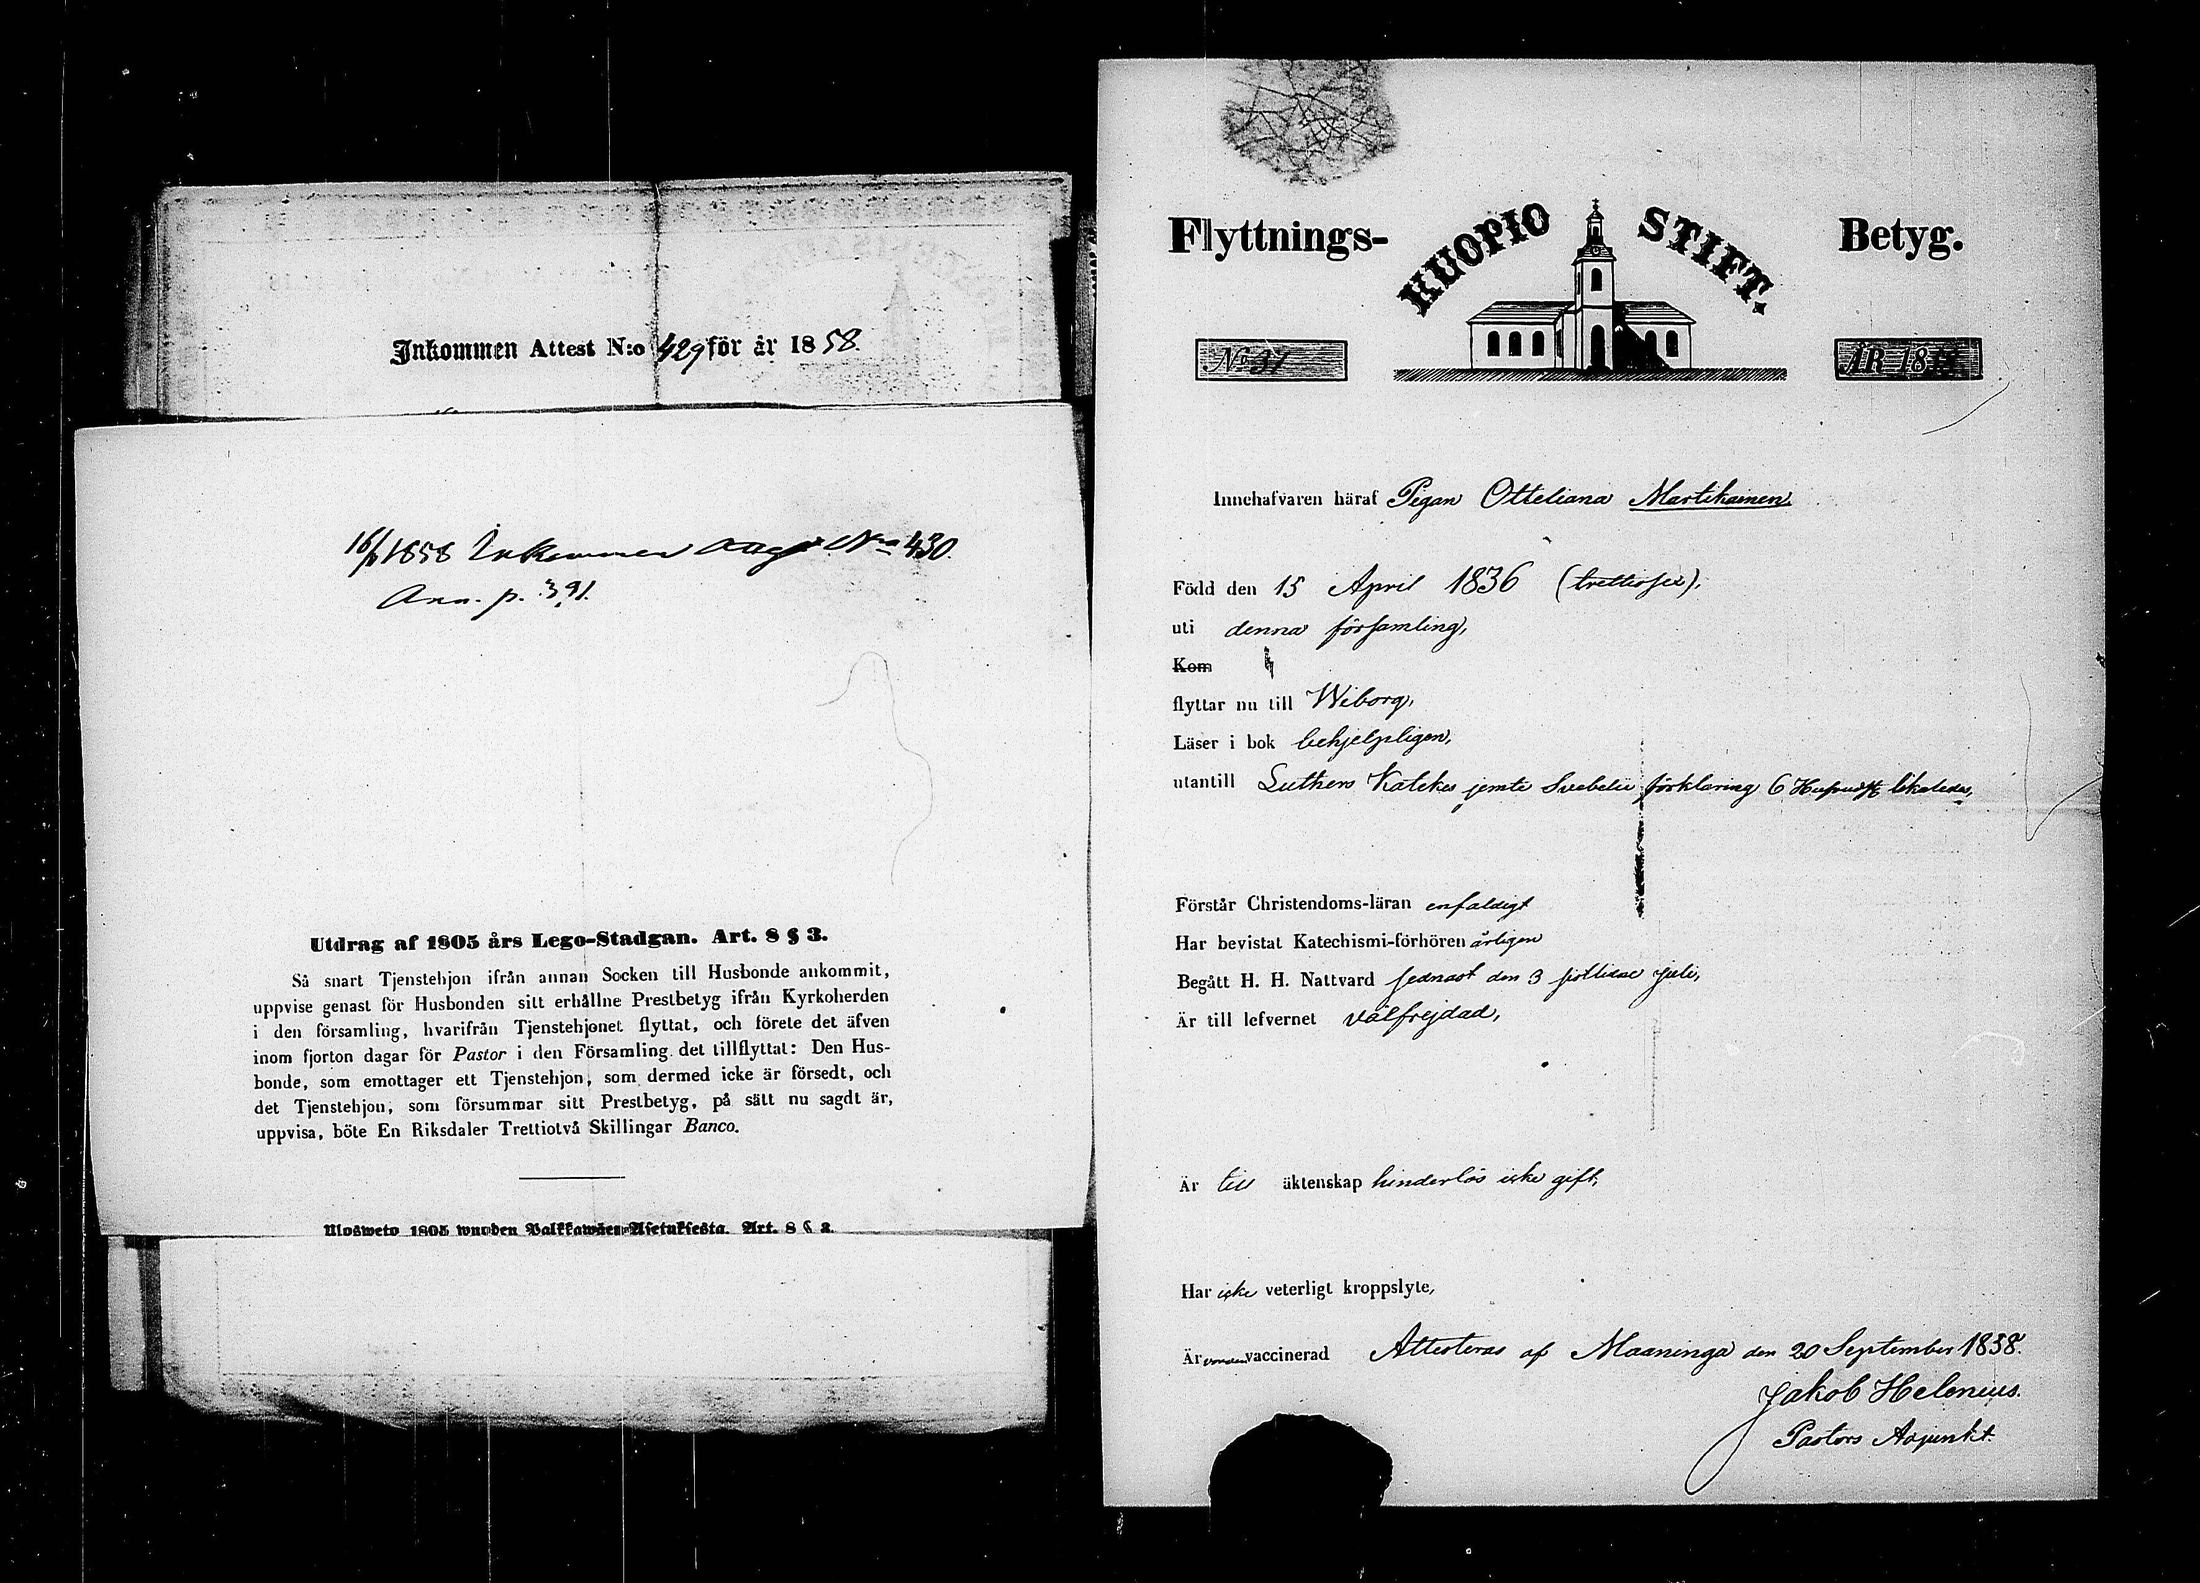 Inkommen Attest N:o 429 för år 1858.
16/ 1858 Inkommen No 430.
Ann. p. 391.
Utdrag af 1805 års Lego-Stadgan. Art. 8 § 3.
Så snart Tjenstehjon ifrån annan Socken till Husbonde ankommit,
uppvise genast för Husbonden sitt erhållne Prestbetyg ifrån Kyrkoherden
i den församling, hvarifrån Tjenstehjonet flyttat, och förete det äfven
inom fjorton dagar för Pastor i den Församling det tillflyttat: Den Hus-
bonde, som emottager ett Tjenstehjon, som dermed icke är försedt, och
det Tjenstehjon, som försummar sitt Prestbetyg, på sätt nu sagdt är,
uppvisa, böte En Riksdaler Trettiotvå Skillingar Banco.
Ulosweto 1805 wuoden Palkkawäen-Asetuksesta. Art. 8 § 3.
Flyttnings- KUOPIO STIFT. Betyg.
No 37 ÅR 18
Innehafvaren häraf Pigan Otteliana Martikainen,
Född den 15 April 1836 (trettiosex),
uti denna församling,
Kom
flyttar nu till Wiborg,
Läser i bok behjelpligen,
utantill Luthers Katekes jemte Svebelii förklaring 6 Hufvudst likaledes,
Förstår Christendoms-läran enfaldigt
Har bevistat Katechismi-förhören årligen
Begått H. H. Nattvard sednast den 3 sistlidne Juli,
Är till lefvernet välfrejdad,
Är till äktenskap hinderlös icke gift,
Har icke veterligt kroppslyte,
Är vorden vaccinerad Attesteras af Maaninga den 20 September 1858.
Jakob Helenius.
Pastors Adjunkt.